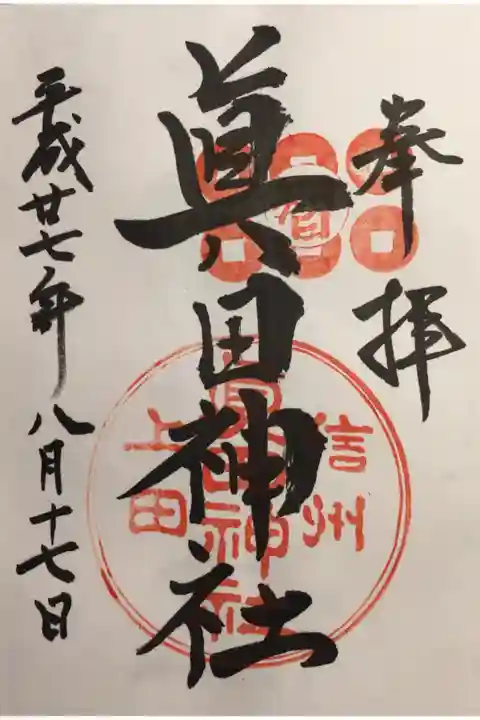 奉拝
眞田神社
信州
眞田神社
上田
平成廿七年八月十七日